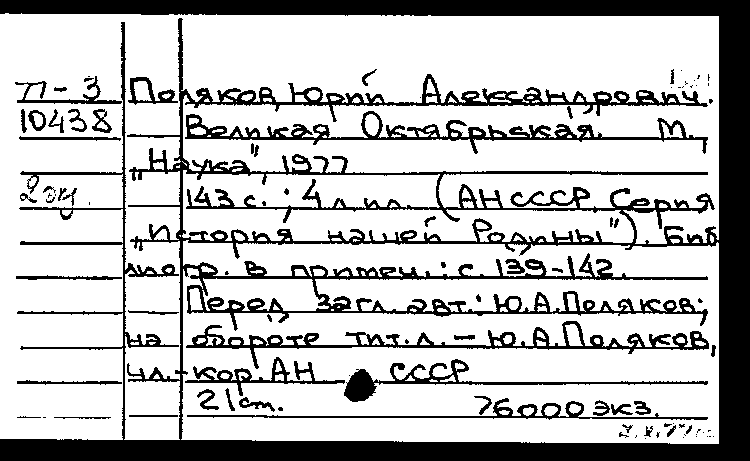 П-3 Поляков, Юрий Александрович.
10438 Великая Октябрьская. М.,
„Наука", 1977
2 эк. 143 с.; 4 л. ил. (АН СССР. Серия
„История нашей Родины"). Биб
лиогр. в примеч.: с. 139-142.
Перед загл. авт.: Ю.А.Поляков;
на обороте тит. л. – Ю.А.Поляков,
чл.-кор. АН СССР
21 cm. 76000 экз.